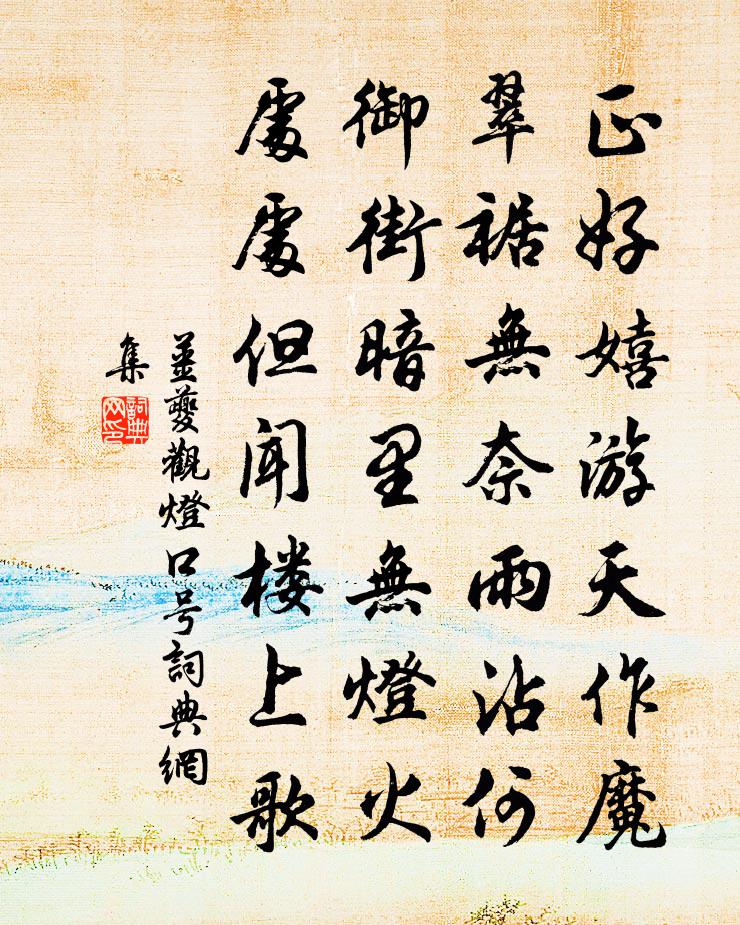 正好嬉游天作魔
翠裾無奈雨沾何
御街暗里無燈火
處處但闻楼上歌
姜夔觀燈口号詞典網
集
詞典
网印